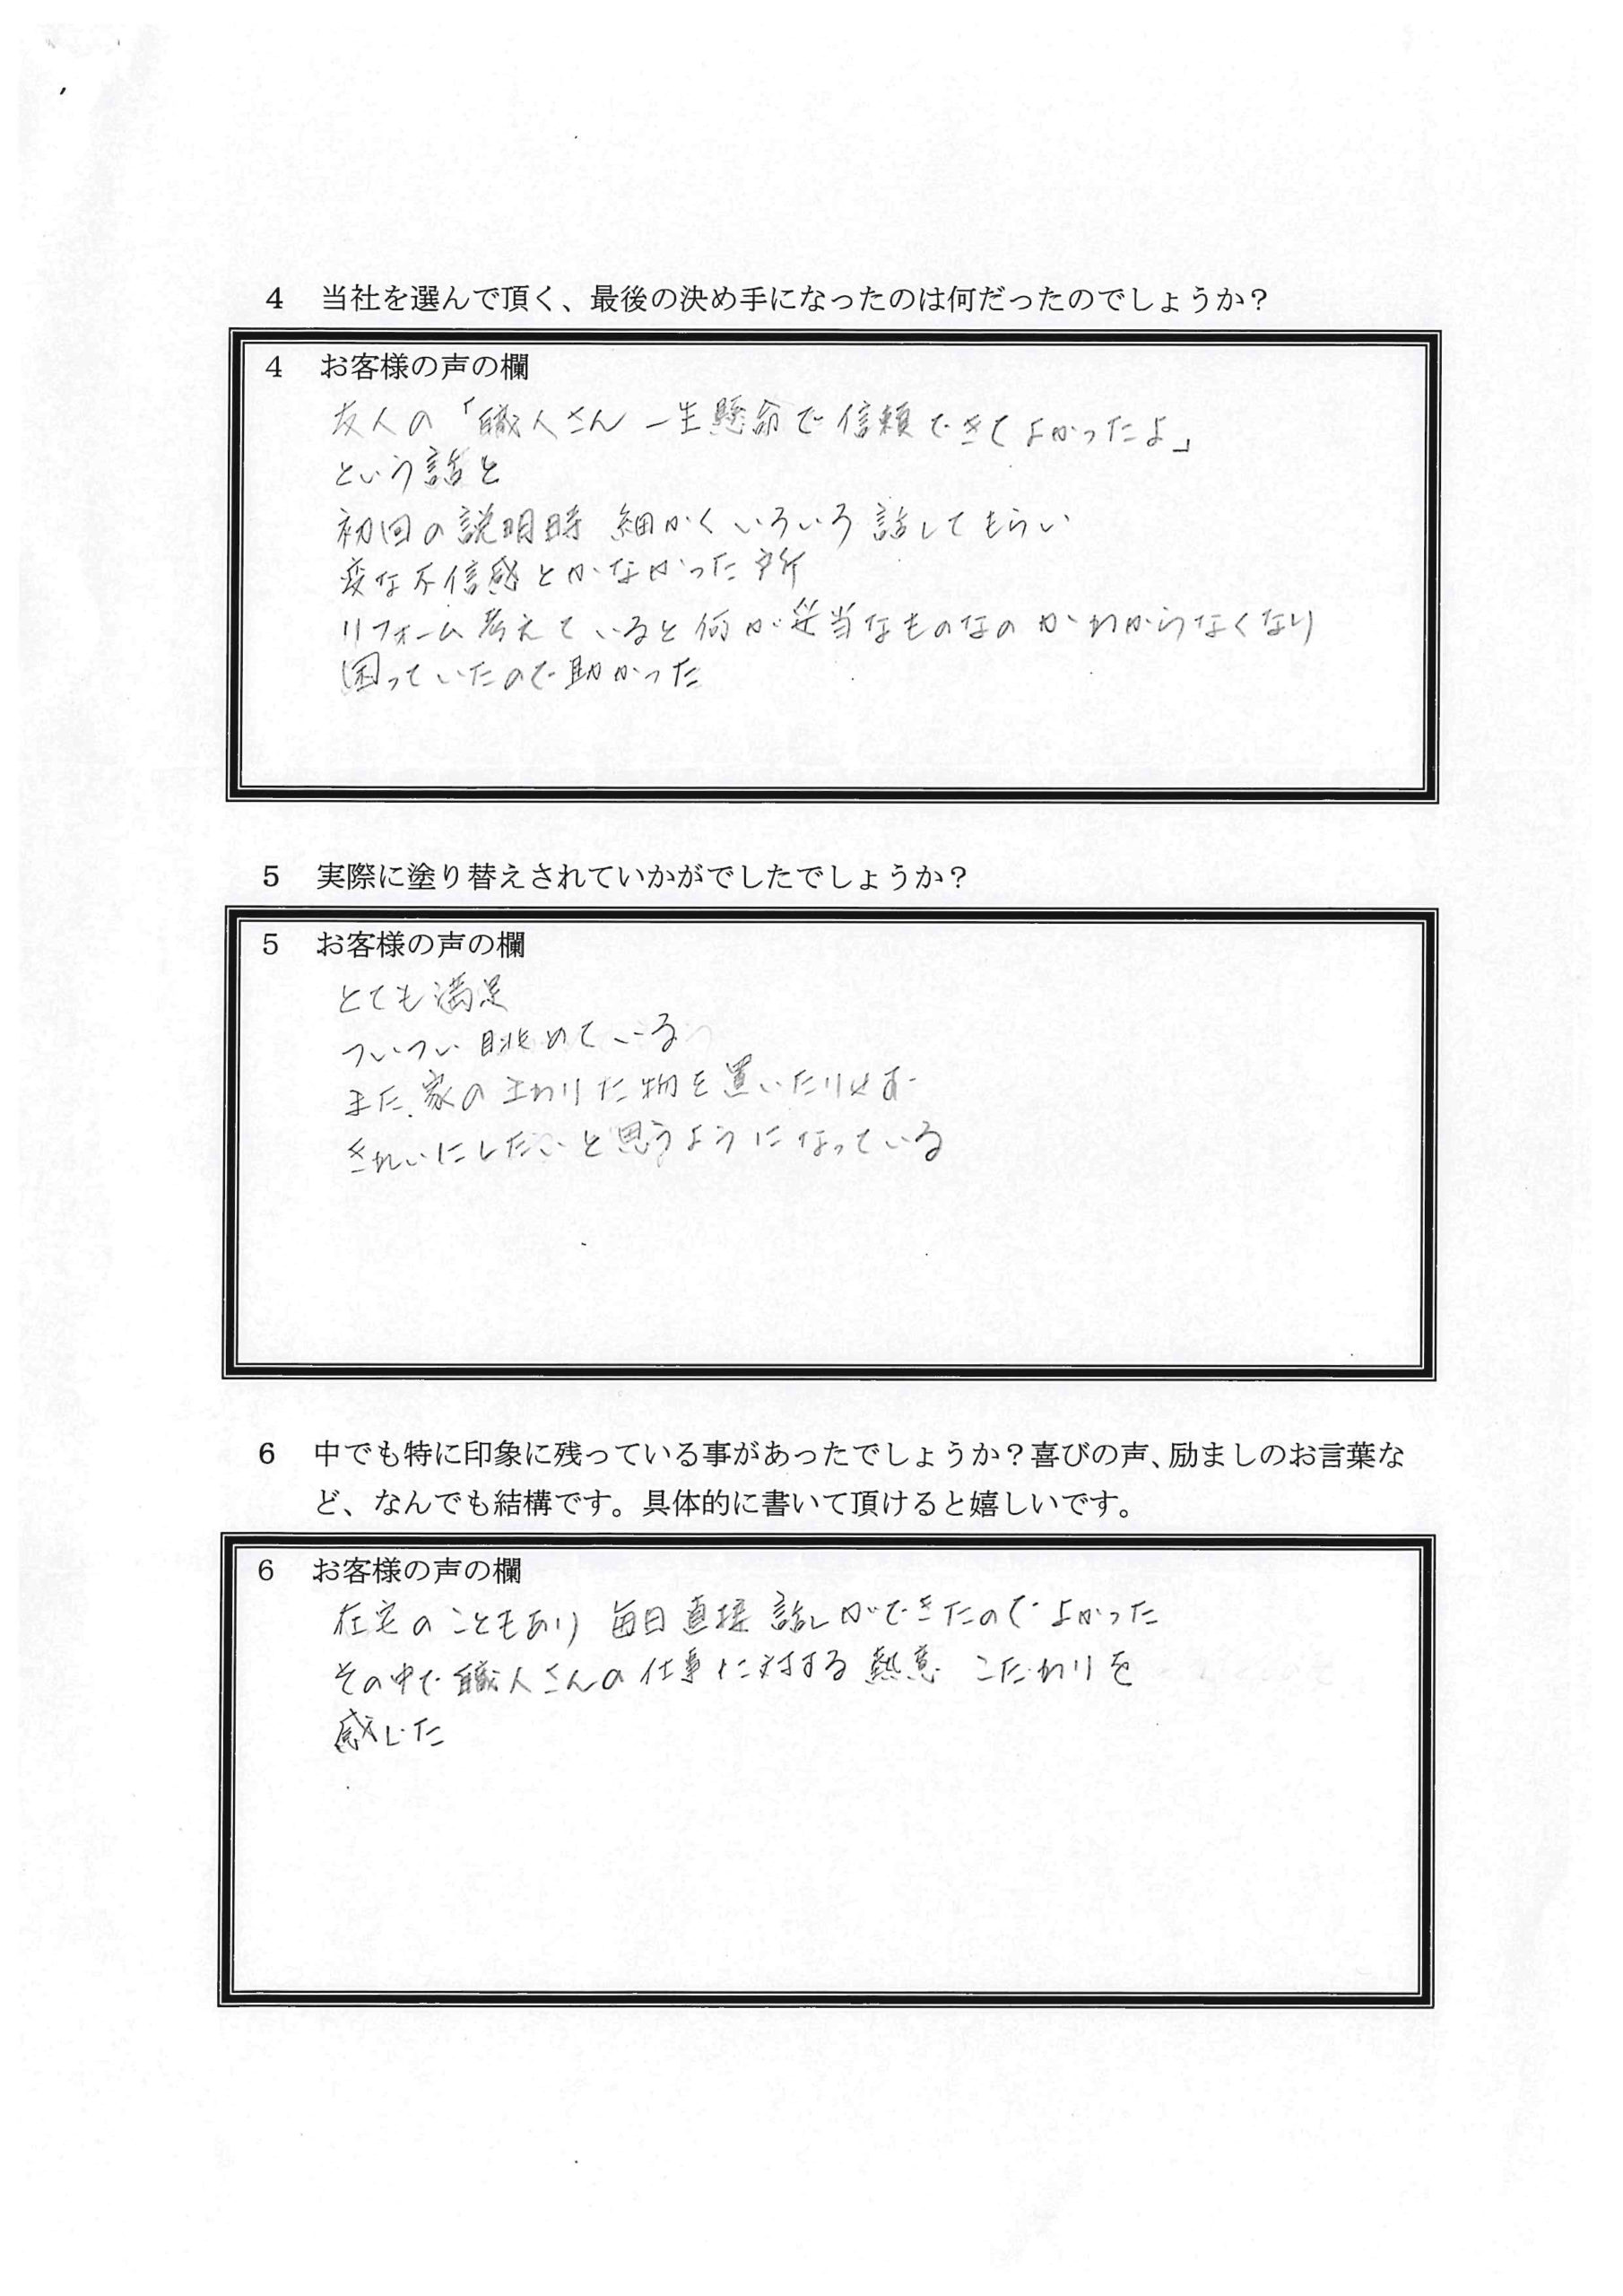 4 当社を選んで頂く、最後の決め手になったのは何だったのでしょうか？
4 お客様の声の欄
友人の「職人さん 一生懸命で信頼できてよかったよ」
という話と
初回の説明時 細かくいろいろ話してもらい
変な不信感とかなかった所
リフォーム考えていると何が妥当なものなのかわからなくなり
困っていたので助かった
5 実際に塗り替えされていかがでしたでしょうか？
5 お客様の声の欄
とても満足
ついつい眺めている
また、家のまわりに物を置いたりせず
きれいにしたいと思うようになっている
6 中でも特に印象に残っている事があったでしょうか？喜びの声、励ましのお言葉な
ど、なんでも結構です。具体的に書いて頂けると嬉しいです。
6 お客様の声の欄
在宅のこともあり 毎日直接 話しができたのでよかった
その中で職人さんの仕事に対する熱意 こだわりを
感じた